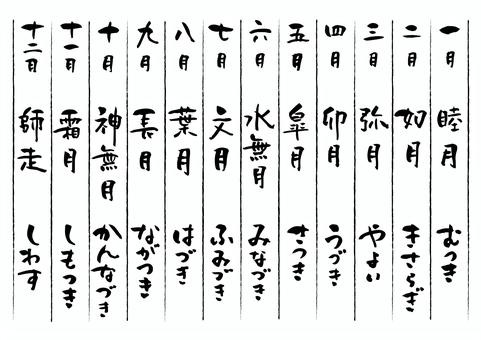 一月 睦月 むつき
二月 如月 きさらぎ
三月 弥月 やよい
四月 卯月 うづき
五月 皐月 さつき
六月 水無月 みなづき
七月 文月 ふみづき
八月 葉月 はづき
九月 長月 ながつき
十月 神無月 かんなづき
十一月 霜月 しもつき
十二月 師走 しわす